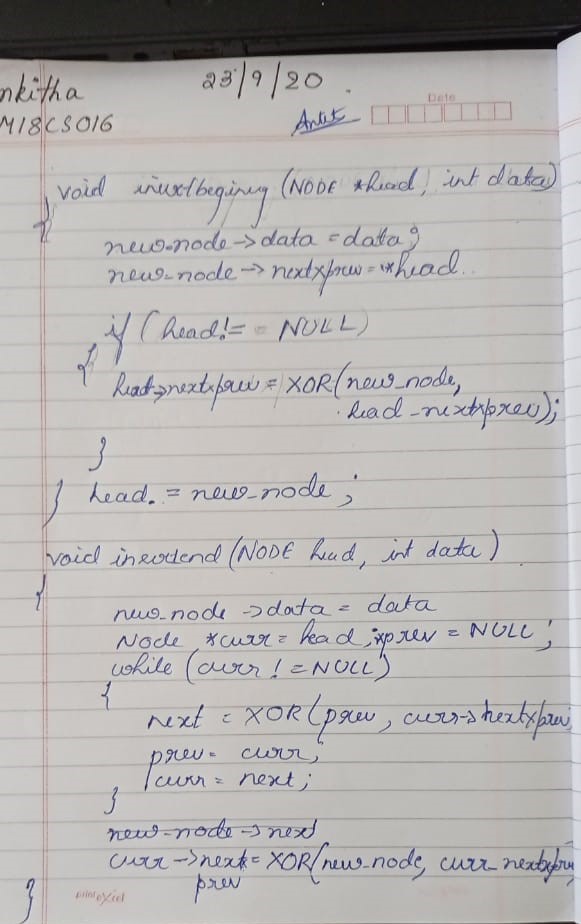 nkitha 23/9/20.
M18CS016
Date
void (NODE *head, int data)
{
new-node->data = data;
new-node->nextxprev = *head.
if (head!= NULL)
{
head->nextxprev = XOR(new_node,
head-nextxprev);
}
head. = new-node;
}
void insertend (NODE head, int data)
{
new_node->data = data
Node *curr = head, *prev = NULL;
while (curr != NULL)
{
next = XOR(prev, curr->nextxprev
prev = curr;
curr = next;
}
new-node->next
curr->next = XOR(new_node, curr nextxprev
prev
}